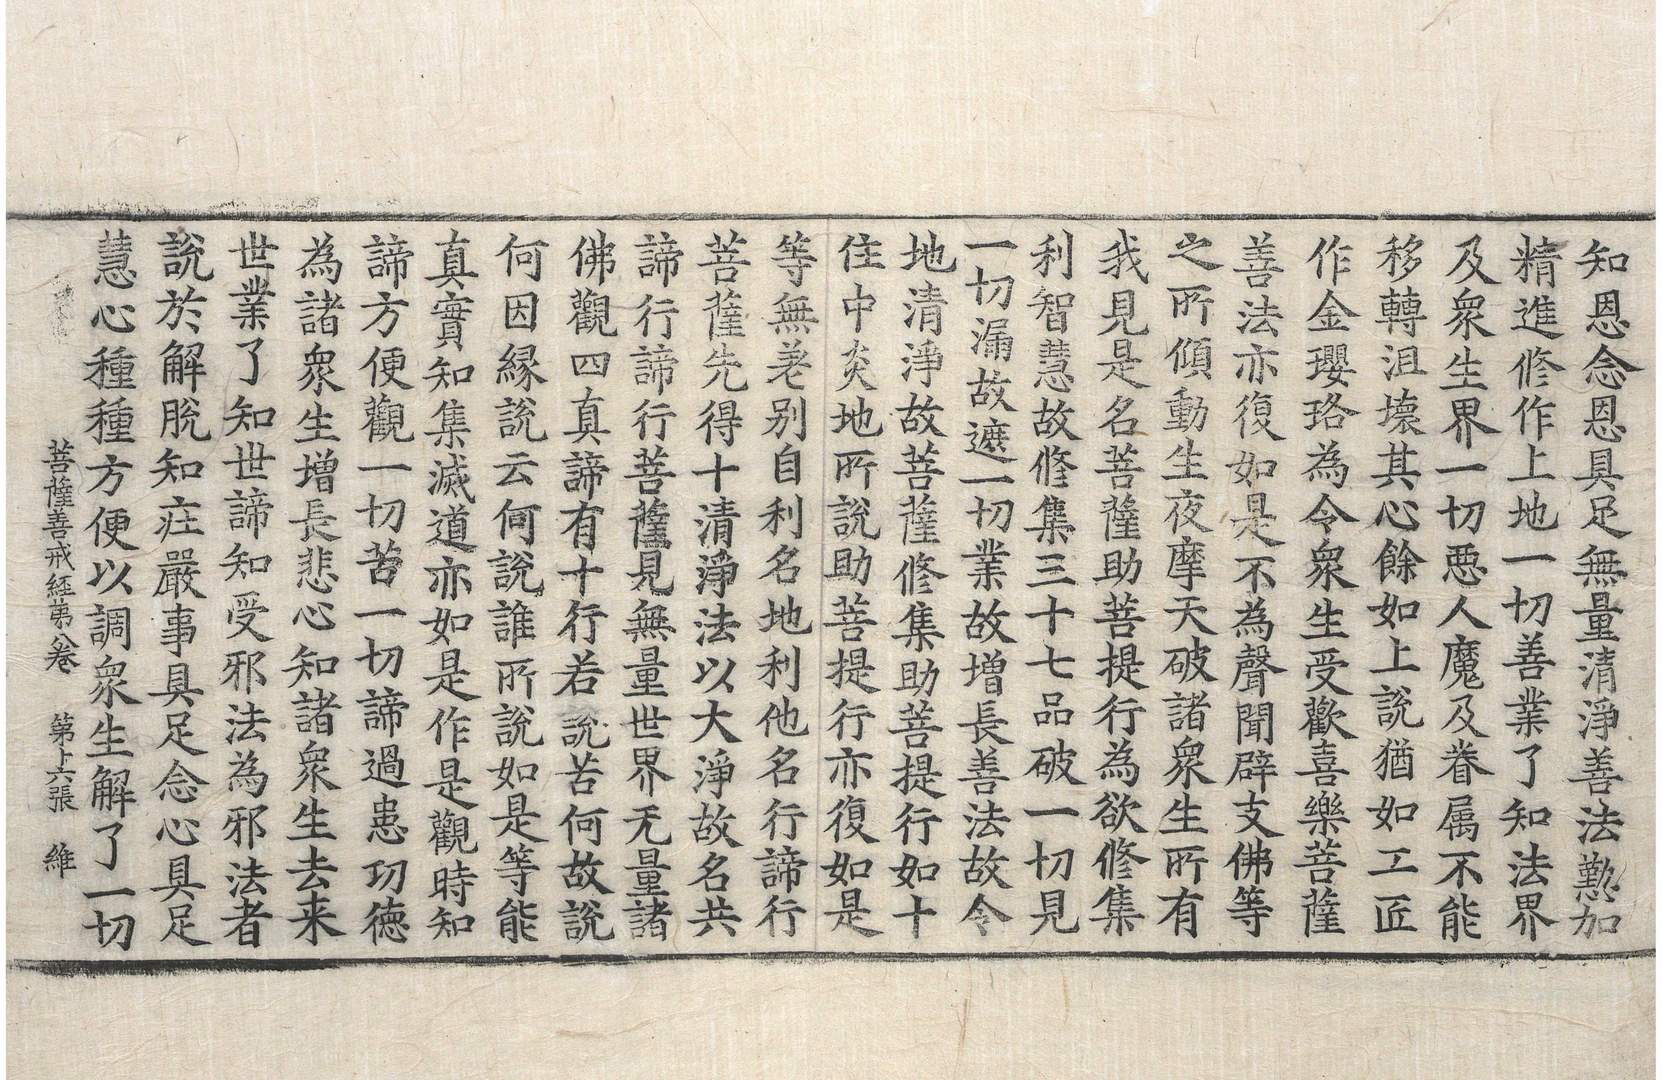 知恩念恩具足無量清淨善法懃加
精進修作上地一切善業了知法界
及衆生界一切惡人魔及眷属不能
移轉沮壞其心餘如上說猶如工匠
作金瓔珞為令衆生受歡喜樂菩薩
善法亦復如是不為聲聞辟支佛等
之所傾動生夜摩天破諸衆生所有
我見是名菩薩助菩提行為欲修集
利智慧故修集三十七品破一切見
一切漏故遮一切業故增長善法故令
地清淨故菩薩修集助菩提行如十
住中炎地所說助菩提行亦復如是
等無差别自利名地利他名行諦行
菩薩先得十清淨法以大淨故名共
諦行諦行菩薩見無量世界无量諸
佛觀四真諦有十行若說苦何故說
何因緣說云何說誰所說如是等能
真實知集滅道亦如是作是觀時知
諦方便觀一切苦一切諦過患功德
為諸衆生增長悲心知諸衆生去来
世業了知世諦知受邪法為邪法者
說於解脫知庄嚴事具足念心具足
慧心種種方便以調衆生解了一切
菩薩善戒経第八卷　第十六張　維